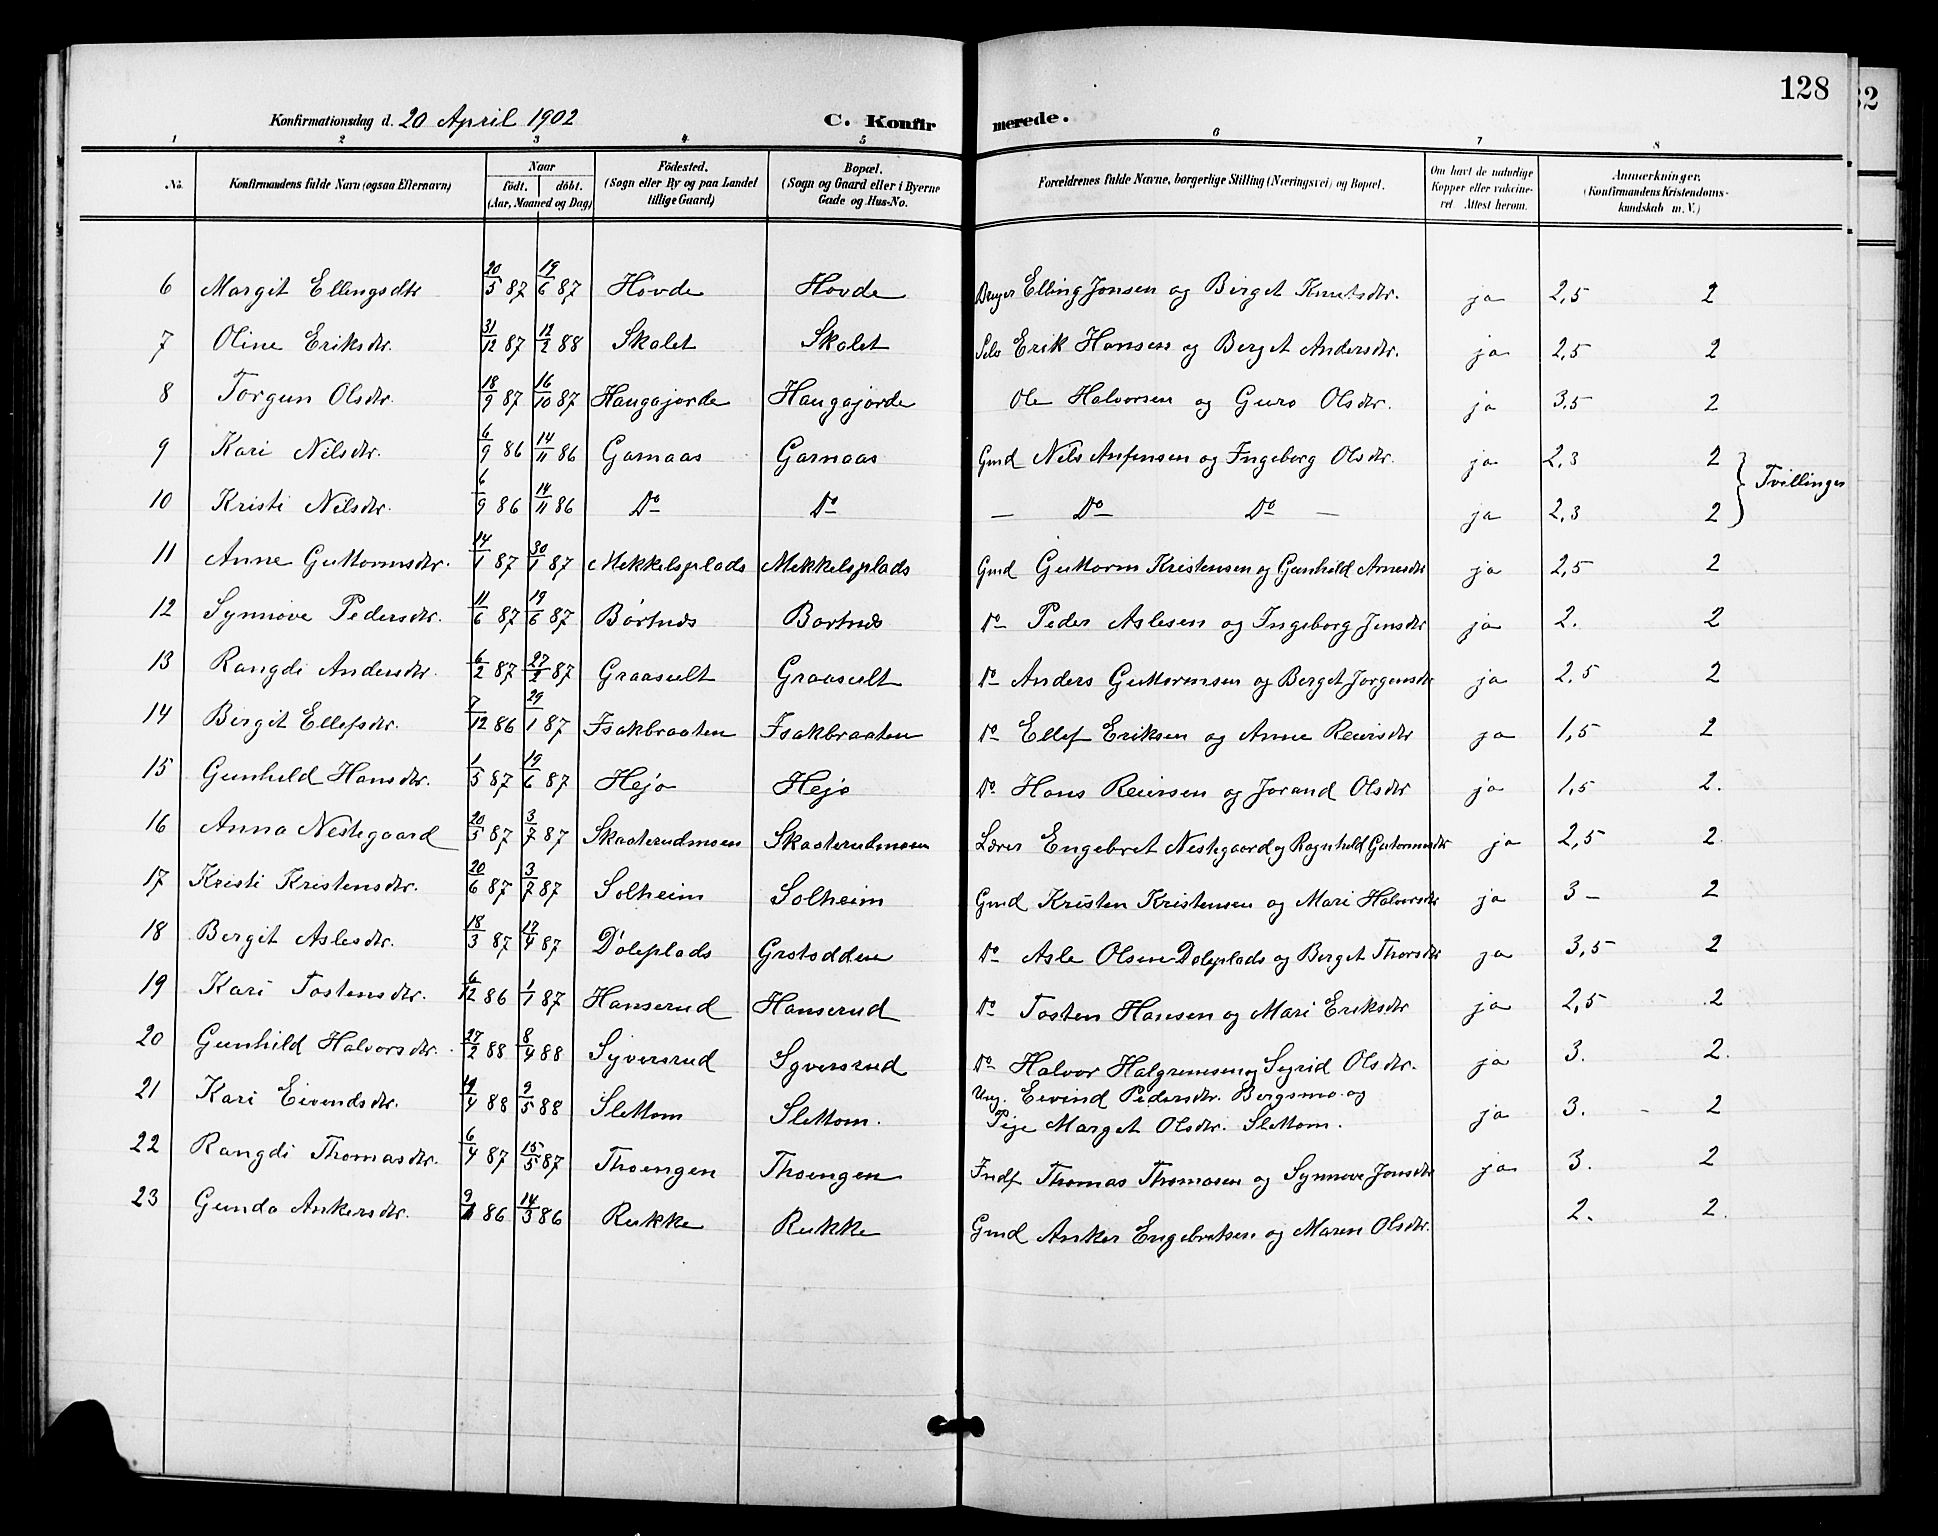 128
32
Konfirmationsdag d. 20 April 1902 C. Konfir merede.
1 2 3 4 5 6 7 8
No. Konfirmandens fulde Navn (ogsaa Efternavn) Naar født. døbt. (Aar, Maaned og Dag) Födested. (Sogn eller By og paa Landet tillige Gaard) Bopæl. (Sogn og Gaard eller i Byerne Gade og Hus-No. Forældrenes fulde Navne, borgerlige Stilling (Næringsvei) og Bopæl. Om havt de naturlige Kopper eller vaccineret. Attest herom. Anmærkninger. (Konfirmandens Kristendomskundskab m. V.)
6 Margit Ellingsdtr 20/5 87 19/6 87 Hovde Hovde Elling Jonsen og Birget Knutsdtr. ja 2,5 2
7 Oline Eriksdtr. 31/12 87 12/2 88 Skalet Skalet Selv Erik Hansen og Berget Andersdtr. ja 2,5 2
8 Torgun Olsdtr. 18/9 87 16/10 87 Haugajorde Haugajorde Ole Halvorsen og Guro Olsdtr. ja 3,5 2
9 Kari Nilsdtr. 6/9 86 14/11 86 Garnaas Garnaas Gmd Nils Anfinsen og Ingeborg Olsdtr. ja 2,3 2
Tvillinger
10 Kristi Nilsdtr. 6/9 86 14/11 86 Do Do — Do Do — ja 2,3 2
11 Anne Guttormsdtr. 14/1 87 30/1 87 Mekkelsplads Mekkelsplads Gmd Guttorm Kristensen og Gunhild Arnesdtr ja 2,5 2
12 Synnøve Pedersdtr. 11/6 87 19/6 87 Børtnes Bortnes Do Peder Aslesen og Ingeborg Jonsdtr ja 2. 2
13 Rangdi Andersdtr. 6/2 87 27/2 87 Graasult Graasult Do Anders Guttormsen og Berget Jorgensdtr ja 2,5 2
14 Birgit Ellefsdtr. 7/12 86 29/1 87 Isakbraaten Isakbraaten Do Ellef Eriksen og Anne Reiersdtr ja 1,5 2
15 Gunhild Hansdtr. 1/5 87 19/6 87 Hejo Hejo Do Hans Reiersen og Jorand Olsdtr ja 1,5 2.
16 Anna Nestegaard 20/5 87 3/7 87 Skaaterudmoen Skaaterudmoen Lærer Engebret Nestegaard og Ragnhild Guttormsdtr ja 2,5 2
17 Kristi Kristensdtr. 20/6 87 3/7 87 Solheim Solheim Gmd Kristen Kristensen og Mari Halvorsdtr ja 3 – 2
18 Bergit Aslesdtr. 18/3 87 17/4 87 Døleplads Grotodden Do Asle Olsen Doleplads og Berget Thorsdtr ja 3,5 2
19 Kari Tostensdtr. 6/12 86 1/1 87 Hanserud Hanserud Do Tosten Hansen og Mari Eriksdtr ja 2,5 2
20 Gunhild Halvorsdtr. 27/2 88 8/4 88 Syversrud Syversrud Do Halvor Halgrimsen og Sigrid Olsdtr. ja 3. 2.
21 Kari Eivendsdtr. 19/4 88 9/5 88 Slettom Slettom. Ung. Eivind Pedersdtr. Bergsmo og
Pige Marget Olsdtr. Slettom. ja 3. 2
22 Rangdi Thomasdtr. 6/4 87 15/5 87 Thoengen Thoengen Indf Thomas Thomasen og Synnove Jonsdtr ja 3. 2
23 Gunda Ankersdtr. 86 14/3 86 Rukke Rukke Gmd Anker Engebretsen og Maren Olsdtr. 2. 2.